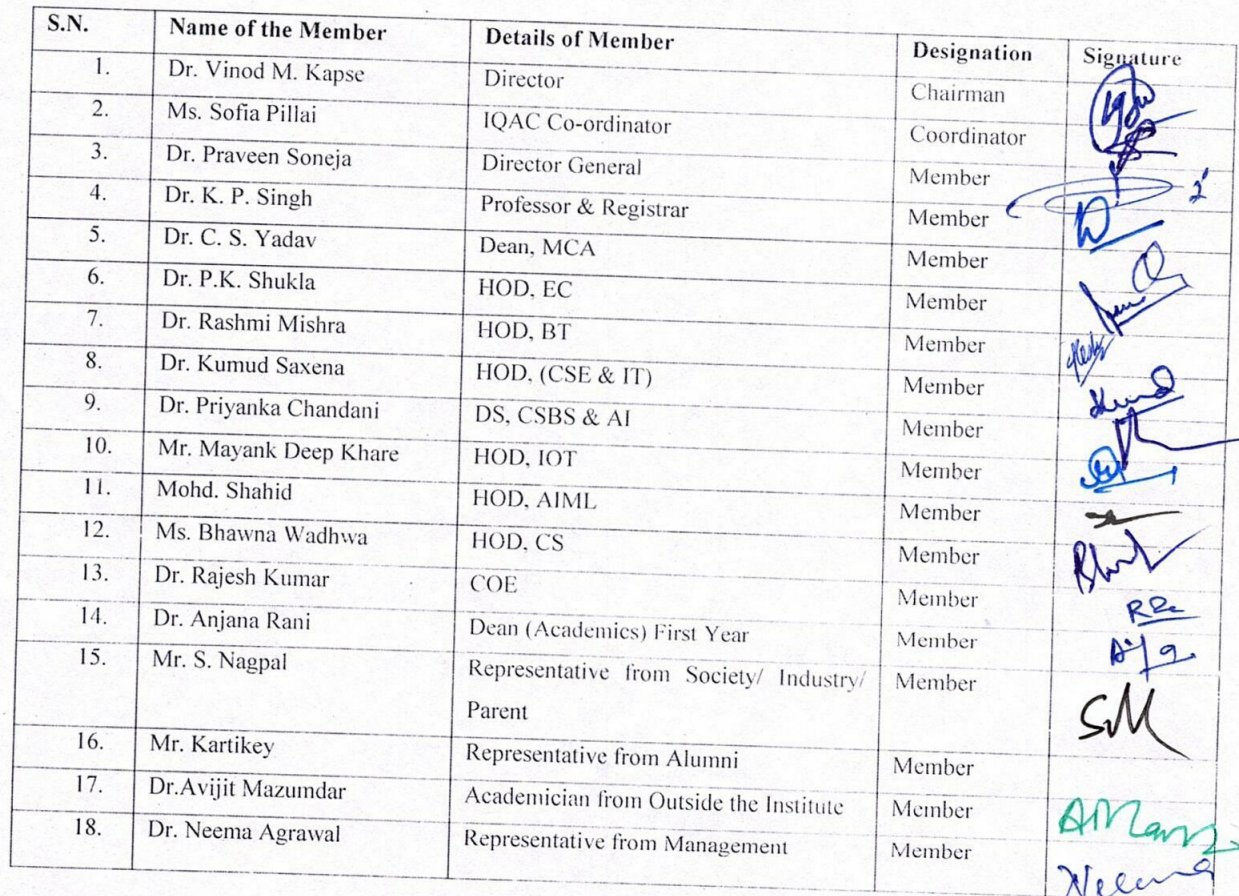 S.N. Name of the Member Details of Member Designation Signature
1. Dr. Vinod M. Kapse Director Chairman
2. Ms. Sofia Pillai IQAC Co-ordinator Coordinator
3. Dr. Praveen Soneja Director General Member
4. Dr. K. P. Singh Professor & Registrar Member
5. Dr. C. S. Yadav Dean, MCA Member
6. Dr. P.K. Shukla HOD, EC Member
7. Dr. Rashmi Mishra HOD, BT Member
8. Dr. Kumud Saxena HOD, (CSE & IT) Member
9. Dr. Priyanka Chandani DS, CSBS & AI Member
10. Mr. Mayank Deep Khare HOD, IOT Member
11. Mohd. Shahid HOD, AIML Member
12. Ms. Bhawna Wadhwa HOD, CS Member
13. Dr. Rajesh Kumar COE Member
14. Dr. Anjana Rani Dean (Academics) First Year Member
15. Mr. S. Nagpal Representative from Society/ Industry/ Member
Parent
16. Mr. Kartikey Representative from Alumni Member
17. Dr.Avijit Mazumdar Academician from Outside the Institute Member
18. Dr. Neema Agrawal Representative from Management Member Neema